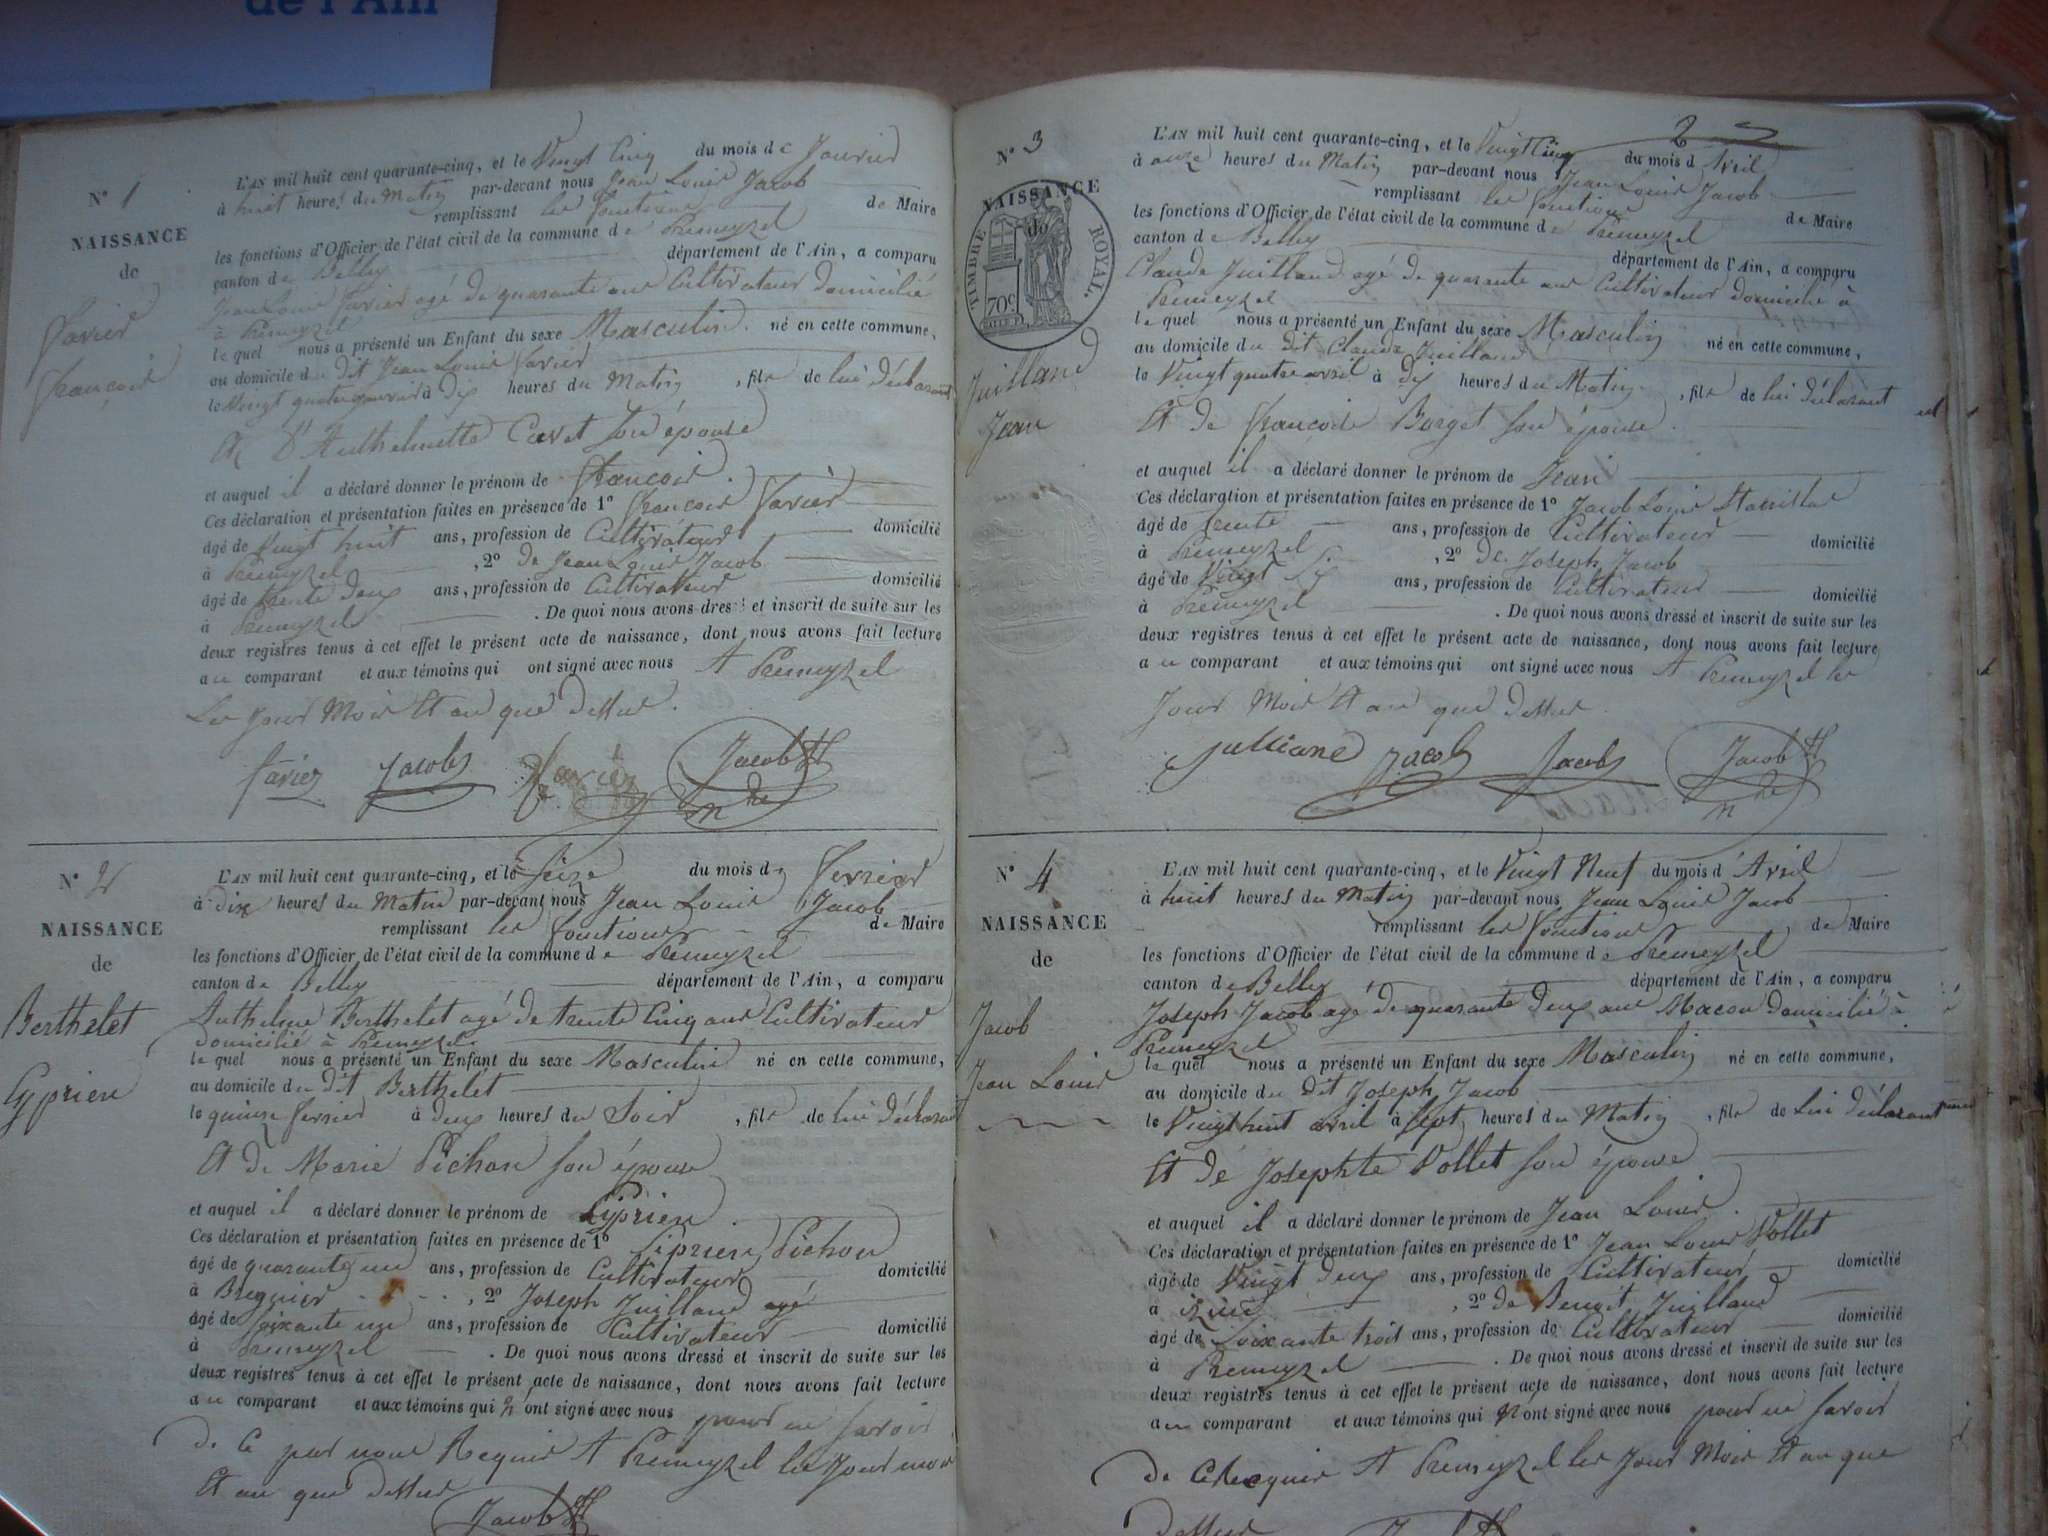 de l'Ain
N° 1
NAISSANCE
de
Favier
François
L'AN mil huit cent quarante-cinq, et le Vingt Cinq du mois de Janvier
à huit heures du Matin par-devant nous Jean Louis Jacob
remplissant les fonctions de Maire
les fonctions d'Officier de l'état civil de la commune de Premeyzel
canton de Belley département de l'Ain, a comparu
Jean Louis Favier agé de quarante ans Cultivateur domicilié
à Premeyzel
lequel nous a présenté un Enfant du sexe Masculin né en cette commune,
au domicile du dit Jean Louis Favier
le Vingt quatre janvier à dix heures du Matin, fils de lui déclarant
Et D'Anthelmette Cavet son épouse
et auquel il a déclaré donner le prénom de François.
Ces déclaration et présentation faites en présence de 1° François Favier
âgé de Vingt huit ans, profession de Cultivateur domicilié
à Premeyzel, 2° de Jean Louis Jacob
âgé de trente deux ans, profession de Cultivateur domicilié
à Premeyzel. De quoi nous avons dressé et inscrit de suite sur les
deux registres tenus à cet effet le présent acte de naissance, dont nous avons fait lecture
au comparant et aux témoins qui ont signé avec nous A Premeyzel
Les Jour Mois Et an que dessus.
favier Jacob favier Jacob
N° 2
NAISSANCE
de
Berthelet
Cyprien
L'AN mil huit cent quarante-cinq, et le Seize du mois de fevrier
à dix heures du Matin par-devant nous Jean Louis Jacob
remplissant les fonctions de Maire
les fonctions d'Officier de l'état civil de la commune de Premeyzel
canton de Belley département de l'Ain, a comparu
Anthelme Berthelet agé de trente Cinq ans Cultivateur
domicilié à Premeyzel
lequel nous a présenté un Enfant du sexe Masculin né en cette commune,
au domicile du dit Berthelet
le quinze fevrier à deux heures du Soir, fils de lui déclarant
Et de Marie Pichon son épouse
et auquel il a déclaré donner le prénom de Cyprien.
Ces déclaration et présentation faites en présence de 1° Ciprien Pichon
âgé de quarante un ans, profession de Cultivateur domicilié
à Bregnier, 2° Joseph Juilland agé
âgé de soixante un ans, profession de Cultivateur domicilié
à Premeyzel. De quoi nous avons dressé et inscrit de suite sur les
deux registres tenus à cet effet le présent acte de naissance, dont nous avons fait lecture
au comparant et aux témoins qui n'ont signé avec nous pour ne savoir
de Ce par nous Requis A Premeyzel les Jour mois
Et an que dessus
Jacob
2
N° 3
NAISSANCE
de
TIMBRE ROYAL.
70c
Juilland
Jean
L'AN mil huit cent quarante-cinq, et le Vingt Cinq du mois d Avril
à onze heures du Matin par-devant nous Jean Louis Jacob
remplissant les fonctions de Maire
les fonctions d'Officier de l'état civil de la commune de Premeyzel
canton de Belley département de l'Ain, a comparu
Claude Juilland agé de quarante ans Cultivateur domicilié à
Premeyzel
lequel nous a présenté un Enfant du sexe Masculin né en cette commune,
au domicile du dit Claude Juilland
le Vingt quatre avril à dix heures du Matin, fils de lui déclarant
Et de françoise Borget son épouse.
et auquel il a déclaré donner le prénom de Jean
Ces déclaration et présentation faites en présence de 1° Jacob Louis Stanislas
âgé de trente ans, profession de Cultivateur domicilié
à Premeyzel, 2° de Joseph Jacob
âgé de Vingt Six ans, profession de Cultivateur domicilié
à Premeyzel. De quoi nous avons dressé et inscrit de suite sur les
deux registres tenus à cet effet le présent acte de naissance, dont nous avons fait lecture
au comparant et aux témoins qui ont signé avec nous A Premeyzel les
Jour Mois Et an que dessus.
Julliand Jacob Jacob Jacob
N° 4
NAISSANCE
de
Jacob
Jean Louis
L'AN mil huit cent quarante-cinq, et le Vingt Neuf du mois d'Avril
à huit heures du Matin par-devant nous Jean Louis Jacob
remplissant les fonctions de Maire
les fonctions d'Officier de l'état civil de la commune de Premeyzel
canton de Belley département de l'Ain, a comparu
Joseph Jacob agé de quarante deux ans Macon domicilié à
Premeyzel
lequel nous a présenté un Enfant du sexe Masculin né en cette commune,
au domicile du dit Joseph Jacob
le Vingt huit avril à Sept heures du Matin, fils de lui déclarant
Et de Josephte Vollet son épouse
et auquel il a déclaré donner le prénom de Jean Louis.
Ces déclaration et présentation faites en présence de 1° Jean Louis Vollet
âgé de Vingt deux ans, profession de Cultivateur domicilié
à, 2° de Benoit Juilland
âgé de Soixante trois ans, profession de Cultivateur domicilié
à Premeyzel. De quoi nous avons dressé et inscrit de suite sur les
deux registres tenus à cet effet le présent acte de naissance, dont nous avons fait lecture
au comparant et aux témoins qui n'ont signé avec nous pour ne savoir
de Ce Requis A Premeyzel les Jour Mois Et an que
dessus Jacob